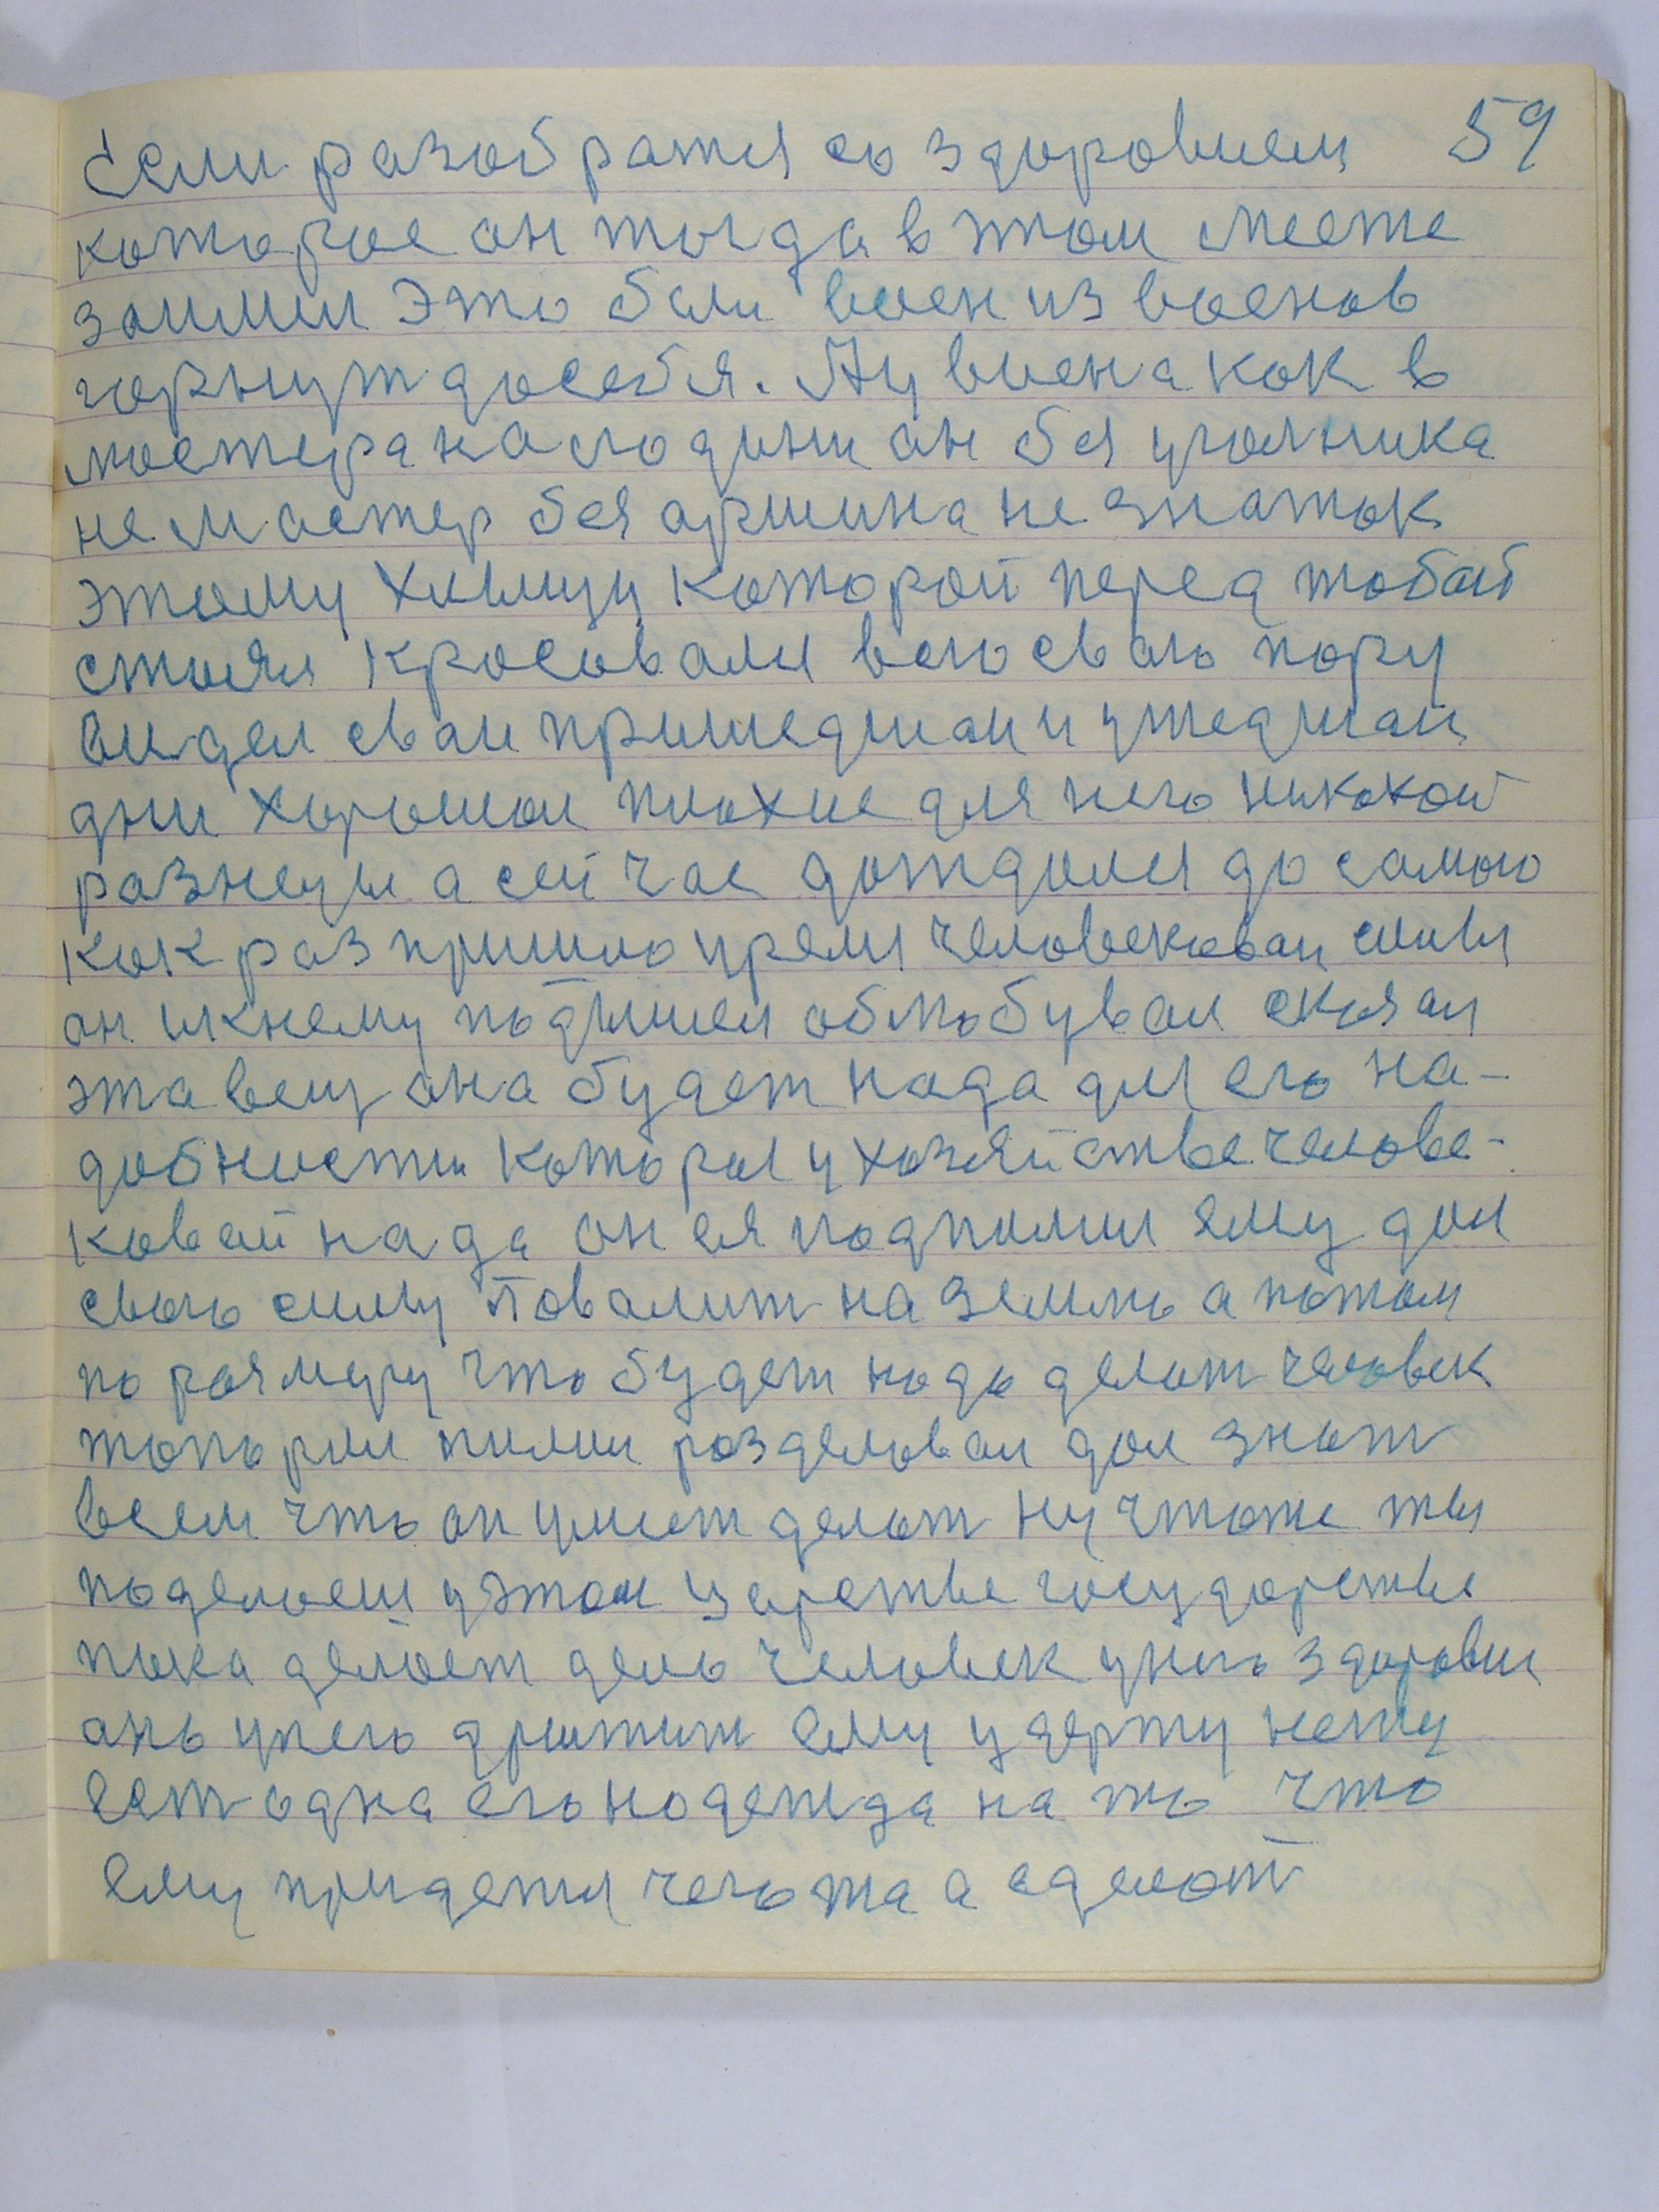 Если разобратся со здоровием 59
которое он тогда в том месте
занимал Это были воен из военов
горнут до себя. Ну воена как в
мастера на години он бея уголника
не мастер бея аршина не знаток
этому хлимцу которой перед тобой
стоял кросовался всю свою пору
видел сваи пришедшаи и ушедшаи
дни хорошаи плохие для него никокой
разнецы а сейчас дождолся до самого
как раз пришло уремя человековаи силы
он икнему подышел облюбувал скаял
эта вещ она будет нада для его на-
добности которая у хозяйстве челове-
ковой нада он ея подпилил ему дал
свою силу повалит на землю а потом
по размеру что будет надо делат человек
топором пилои розделовал дал знат
всем что он умеет делат ну чтоже ты
поделаеш у этом царстве государстве
пока делоет дело человек унего здоровия
оно унего дрижит ему удержу нету
Ест одна его нодежда на то что
ему придется чегота а сделот